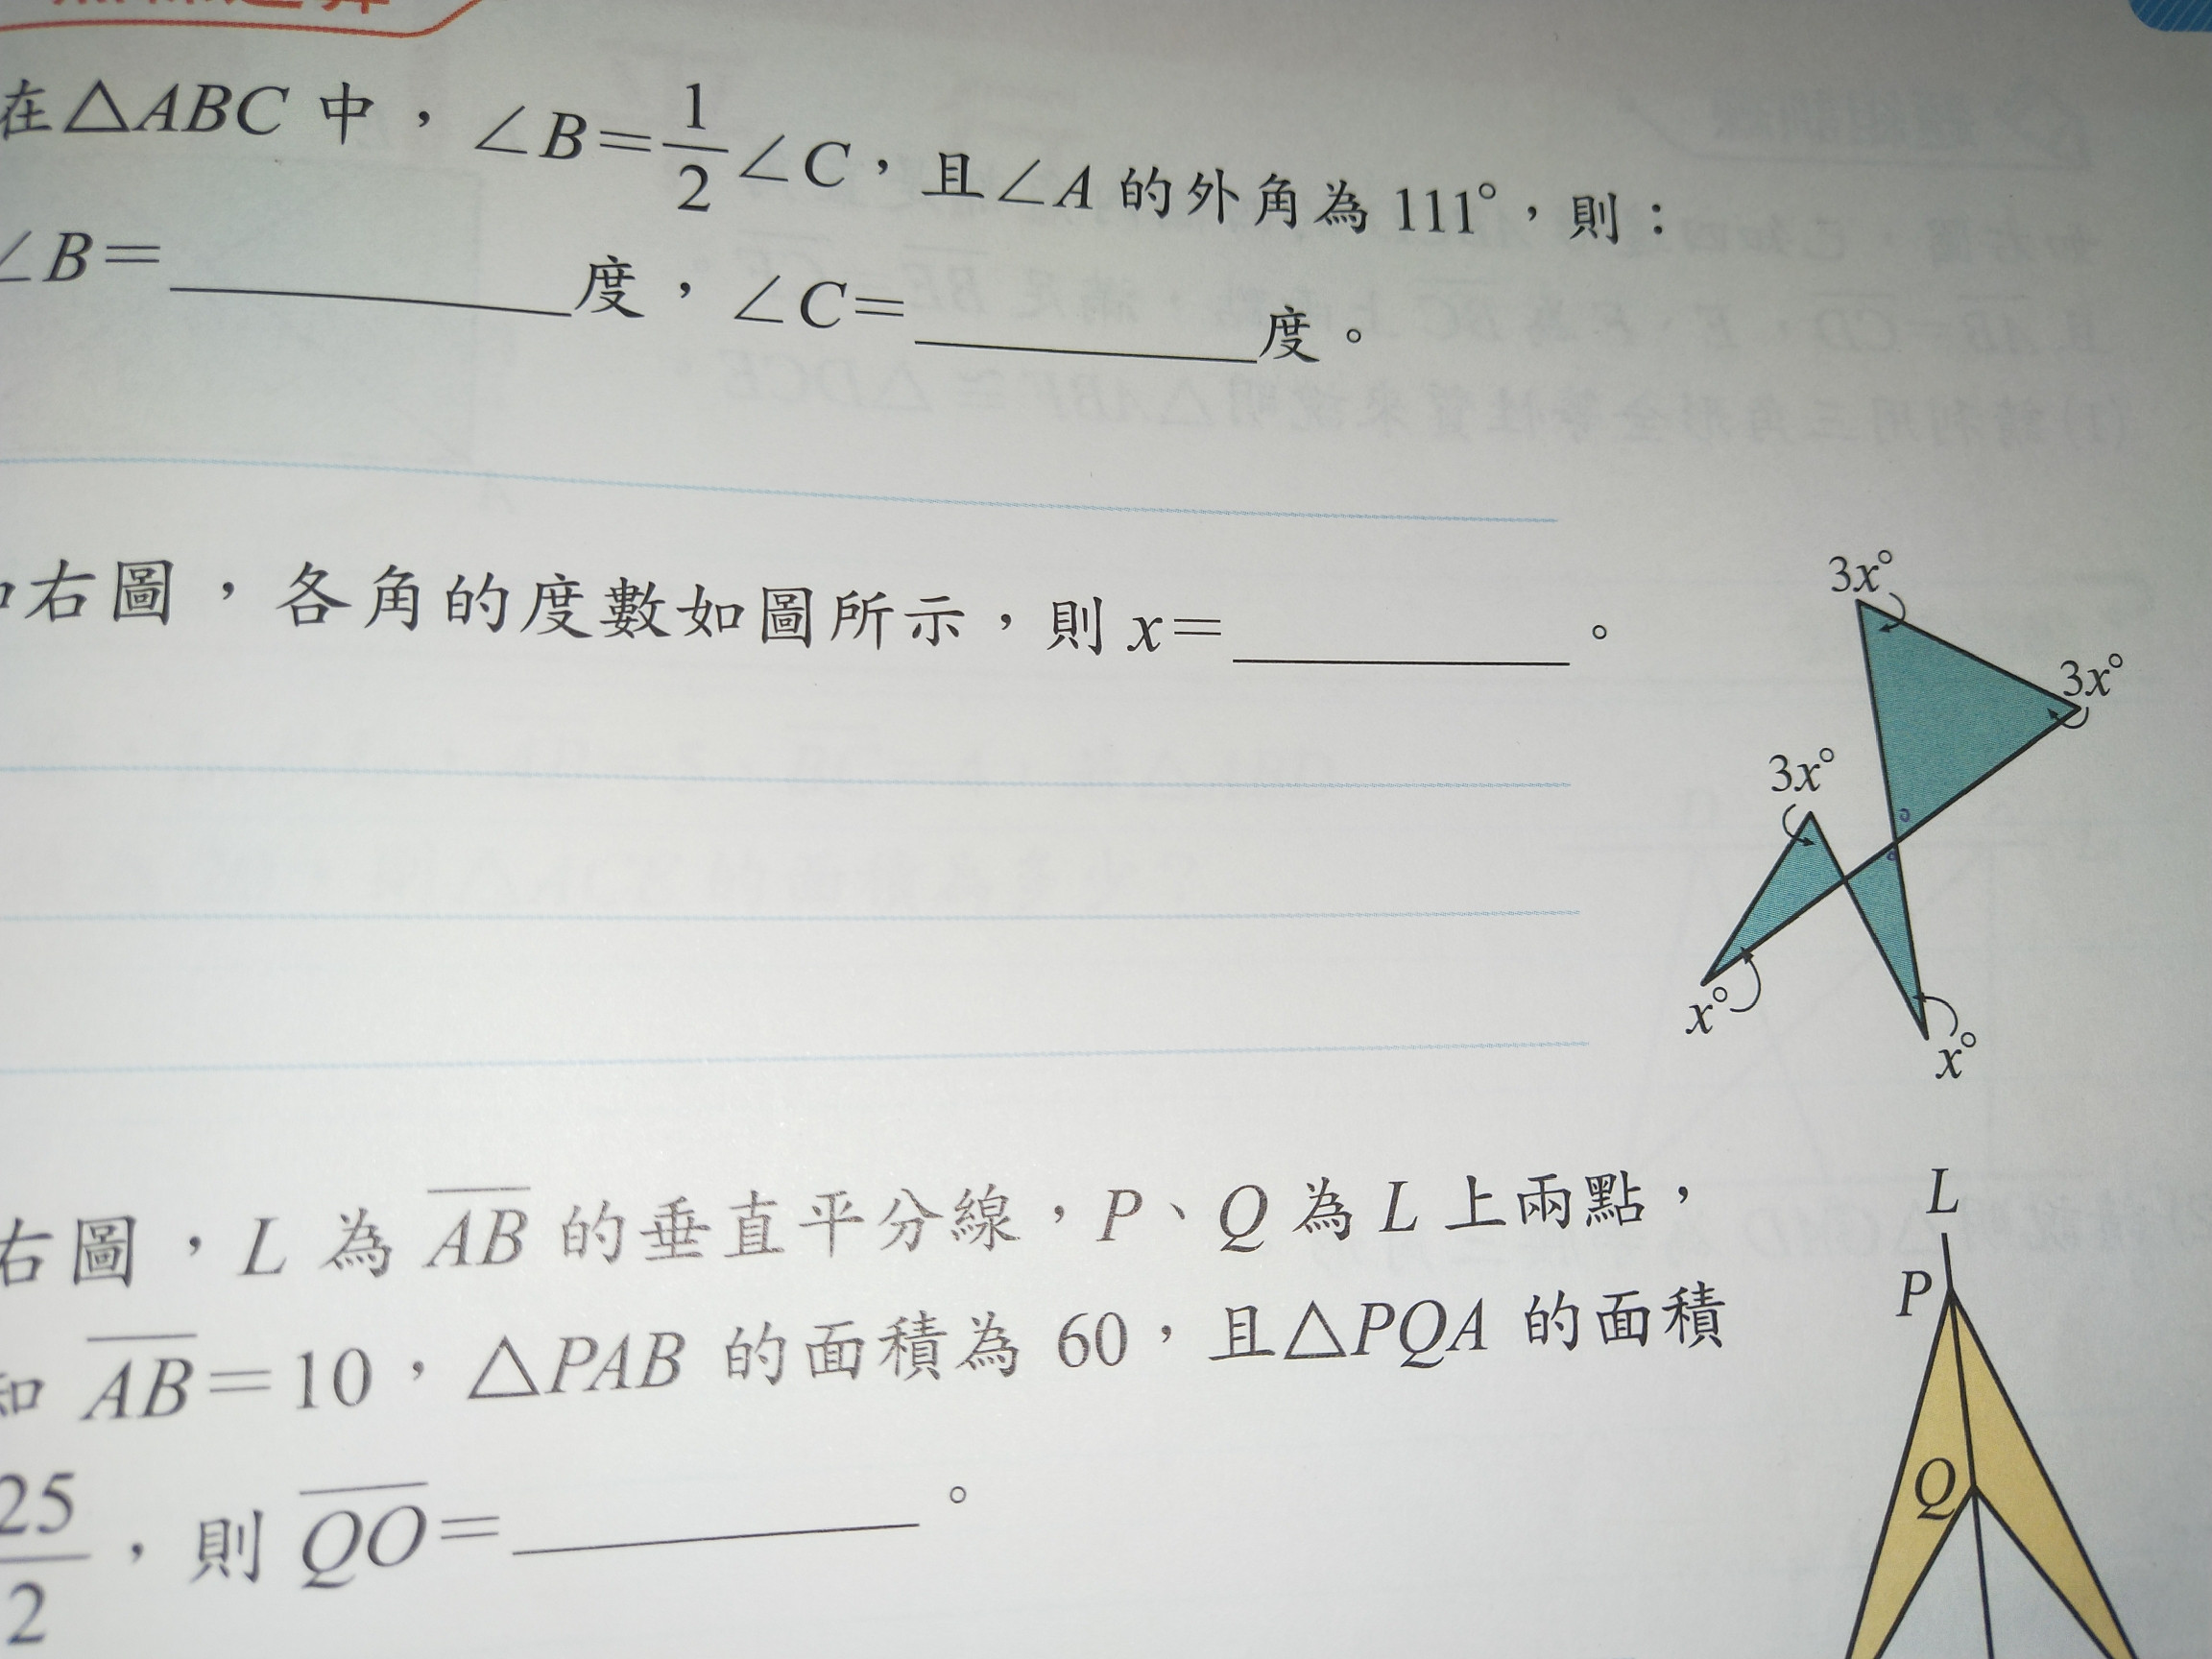 在△ABC 中，∠B=1/2∠C，且∠A 的外角為 111°，則：
∠B=________度，∠C=________度。
右圖，各角的度數如圖所示，則 x=________。
3x°
3x°
3x°
x°
x°
右圖，L 為 AB 的垂直平分線，P、Q 為 L 上兩點，
知 AB=10，△PAB 的面積為 60，且△PQA 的面積
25/2，則 QO=________。
L
P
Q